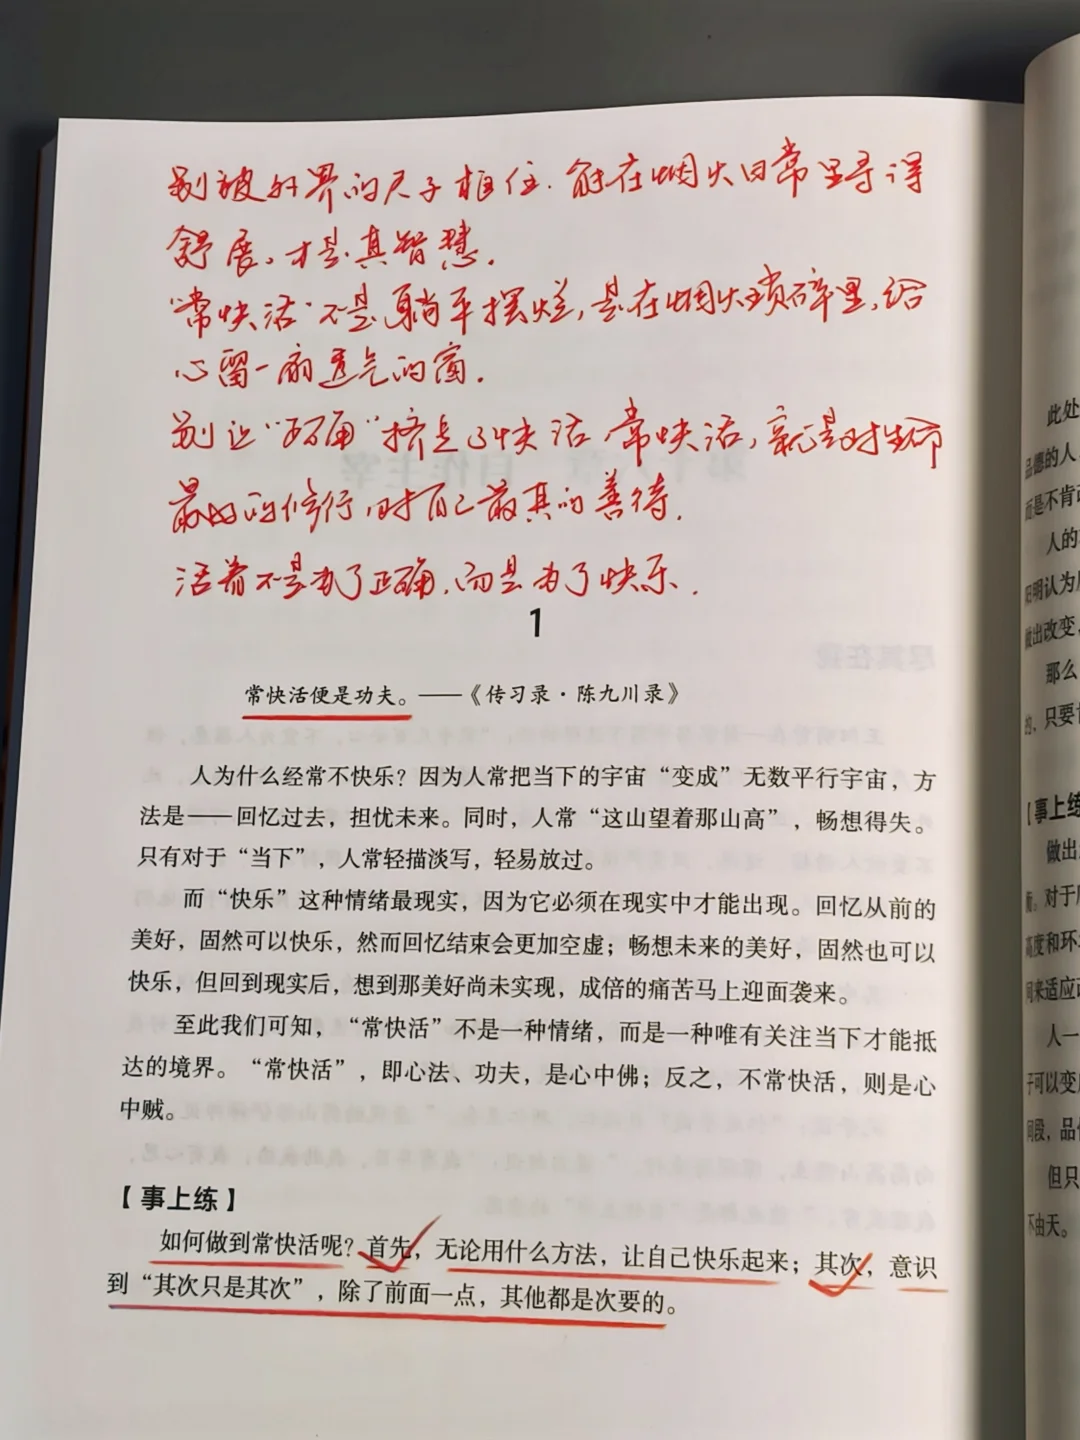 别被外界的尺子框住.能在烟火日常里寻得
舒展。才是真智慧.
"常快活"不是躺平摆烂,是在烟火琐碎里,给
心留一扇透气的窗.
别让"正确"挤走了快活,常快活,就是对生命
最好的修行,对自己最真的善待.
活着不是为了正确.而是为了快乐.
1
常快活便是功夫。——《传习录·陈九川录》
人为什么经常不快乐?因为人常把当下的宇宙“变成”无数平行宇宙,方
法是——回忆过去,担忧未来。同时,人常“这山望着那山高”,畅想得失。
只有对于“当下”,人常轻描淡写,轻易放过。
而“快乐”这种情绪最现实,因为它必须在现实中才能出现。回忆从前的
美好,固然可以快乐,然而回忆结束会更加空虚;畅想未来的美好,固然也可以
快乐,但回到现实后,想到那美好尚未实现,成倍的痛苦马上迎面袭来。
至此我们可知,“常快活”不是一种情绪,而是一种唯有关注当下才能抵
达的境界。“常快活”,即心法、功夫,是心中佛;反之,不常快活,则是心
中贼。
【事上练】
如何做到常快活呢?首先,无论用什么方法,让自己快乐起来;其次,意识
到“其次只是其次”,除了前面一点,其他都是次要的。
此处
品德的人
而是不肯
人的
阳明认为
做出改变,
那么
的,只要
【事上练
做出
对于
高度和环
间来适应
人一
子可以变
间段,品
但只
不由天。